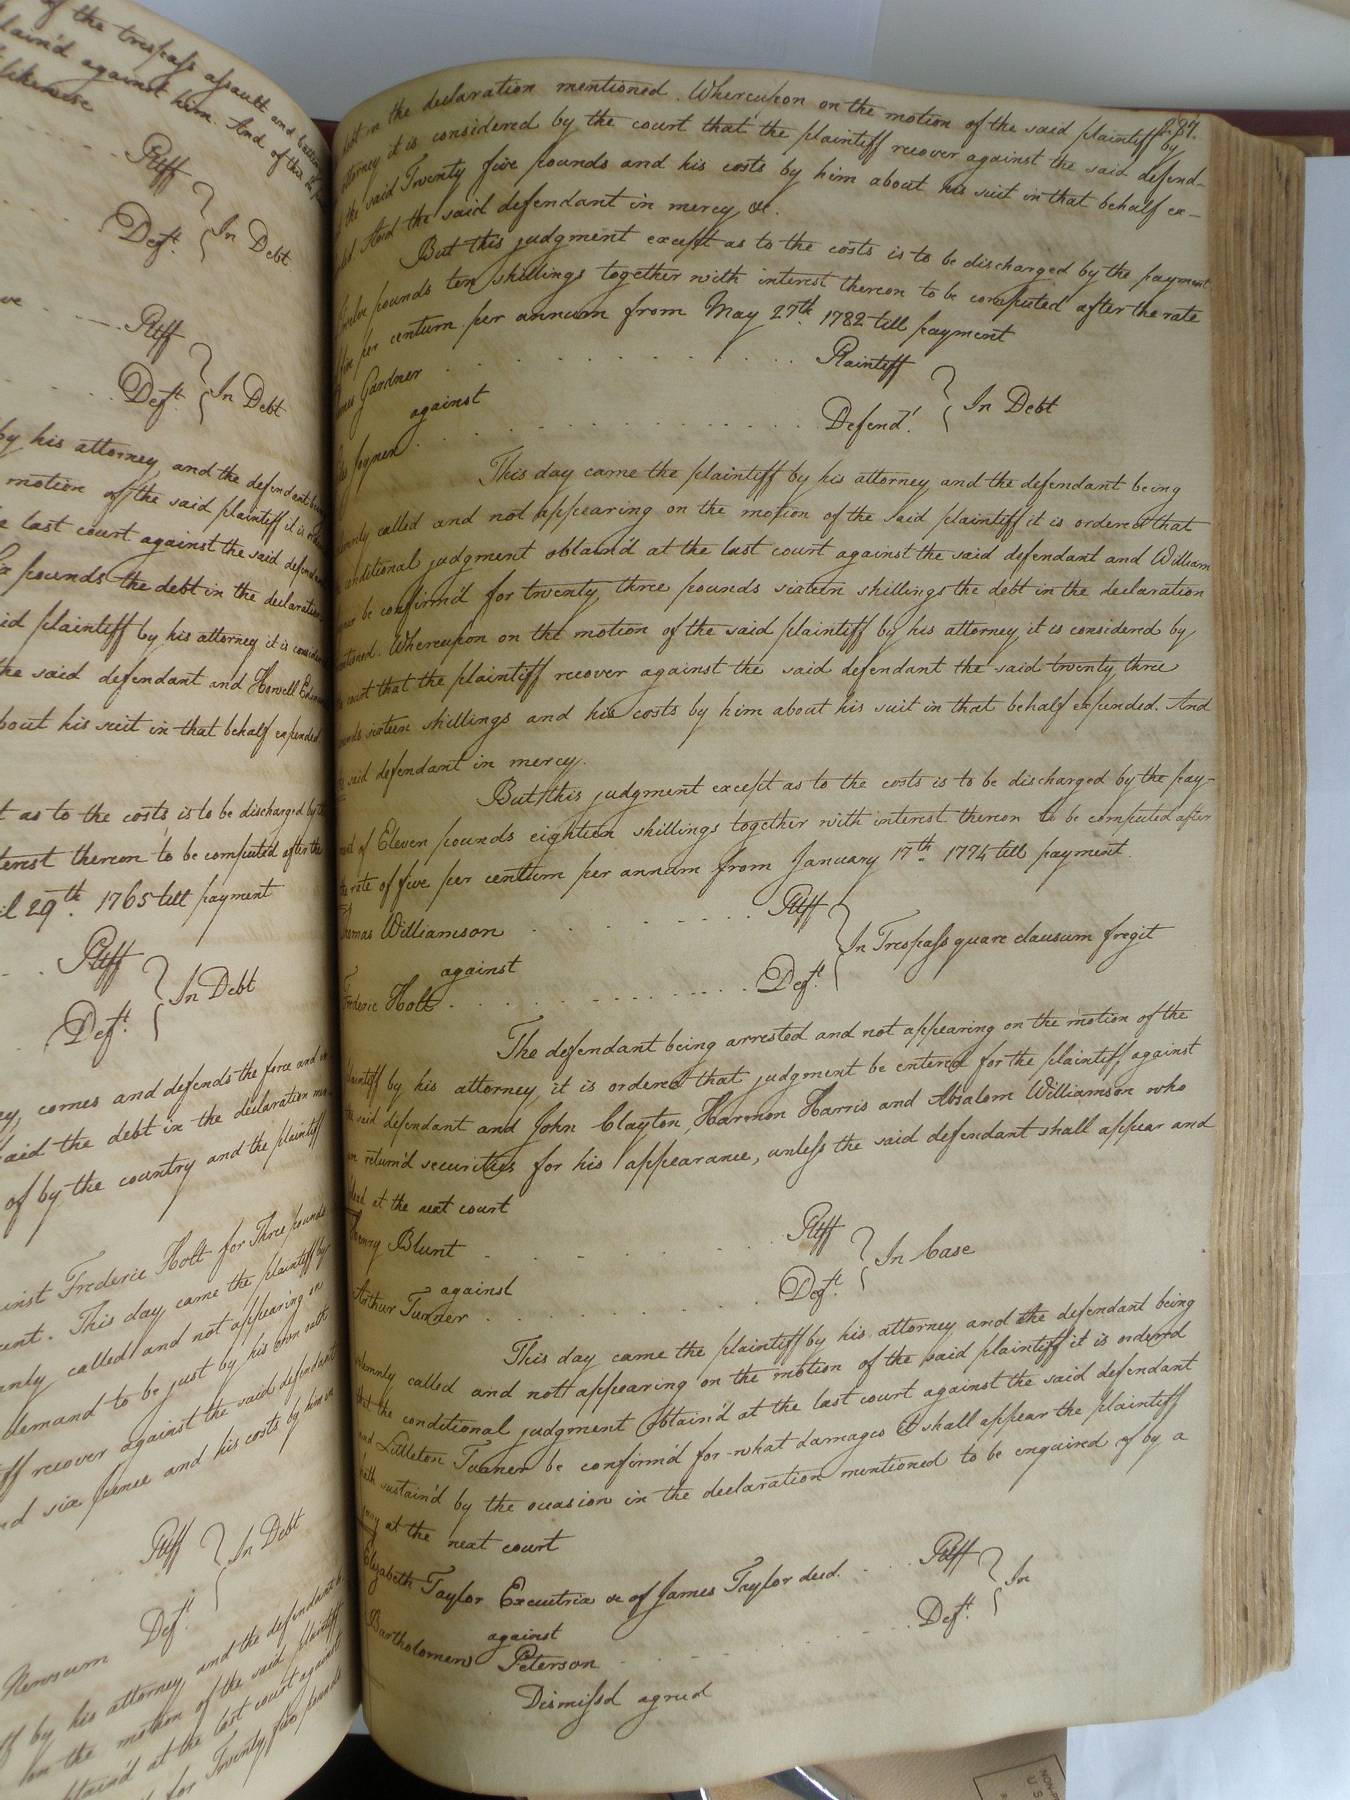 of the trespass assault and batter
plain'd against him. And of this he p
likewise
Pltff
Deft. } In Debt
Pltff
Deft. } In Debt
by his attorney and the defendant bein
motion of the said plaintiff it is orde
e last court against the said defendan
pounds the debt in the declaration
id plaintiff by his attorney it is consider
he said defendant and Howell Edm
bout his suit in that behalf expended
t as to the costs is to be discharged by th
terest thereon to be computed after the
il 29th. 1765 till payment
Pltff
Deft. } In Debt
ey, comes and defends the force and in
paid the debt in the declaration men
of by the country and the plaintiff
ainst Frederic Holt for Three pounds
ent. This day came the plaintiff by
nly called and not appearing on
demand to be just by his own oath
ff recover against the said defendant
nd six pence and his costs by him in
Pltff
Deft. } In Debt
Newsum
ff by his attorney and the defendant b
on the motion of the said plaintiff
btain'd at the last court against
for Twenty five pounds
287.
debt in the declaration mentioned. Whereupon on the motion of the said plaintiff by
attorney it is considered by the court that the plaintiff recover against the said defend-
the said Twenty five pounds and his costs by him about his suit in that behalf ex-
ded. And the said defendant in mercy &c.
But this judgment except as to the costs is to be discharged by the payment
Twelve pounds ten shillings together with interest thereon to be computed after the rate
five per centum per annum from May 27th. 1782 till payment
mes Gardner Plaintiff
against } In Debt
Joyner Defendt.
This day came the plaintiff by his attorney and the defendant being
emnly called and not appearing on the motion of the said plaintiff it is ordered that
conditional judgment obtain'd at the last court against the said defendant and William
be confirm'd for twenty three pounds sixteen shillings the debt in the declaration
entioned. Whereupon on the motion of the said plaintiff by his attorney it is considered by
the court that the plaintiff recover against the said defendant the said twenty three
pounds sixteen shillings and his costs by him about his suit in that behalf expended. And
the said defendant in mercy.
But this judgment except as to the costs is to be discharged by the pay-
ment of Eleven pounds eighteen shillings together with interest thereon to be computed after
the rate of five per centum per annum from January 17th. 1774 till payment.
Thomas Williamson Pltff
against } In Trespass quare clausum fregit
Frederic Holt Deft.
The defendant being arrested and not appearing on the motion of the
plaintiff by his attorney it is ordered that judgment be entered for the plaintiff against
the said defendant and John Clayton, Harmon Harris and Absalom Williamson who
return'd securities for his appearance, unless the said defendant shall appear and
plead at the next court
Henry Blunt Pltff
against } In Case
Arthur Turner Deft.
This day came the plaintiff by his attorney and the defendant being
solemnly called and not appearing on the motion of the said plaintiff it is ordered
that the conditional judgment obtain'd at the last court against the said defendant
and Littleton Turner be confirm'd for what damages it shall appear the plaintiff
hath sustain'd by the occasion in the declaration mentioned to be enquired of by a
jury at the next court
Elizabeth Taylor Executrix &c of James Taylor decd. Pltff
against } In
Bartholomew Peterson Deft.
Dismiss'd agreed